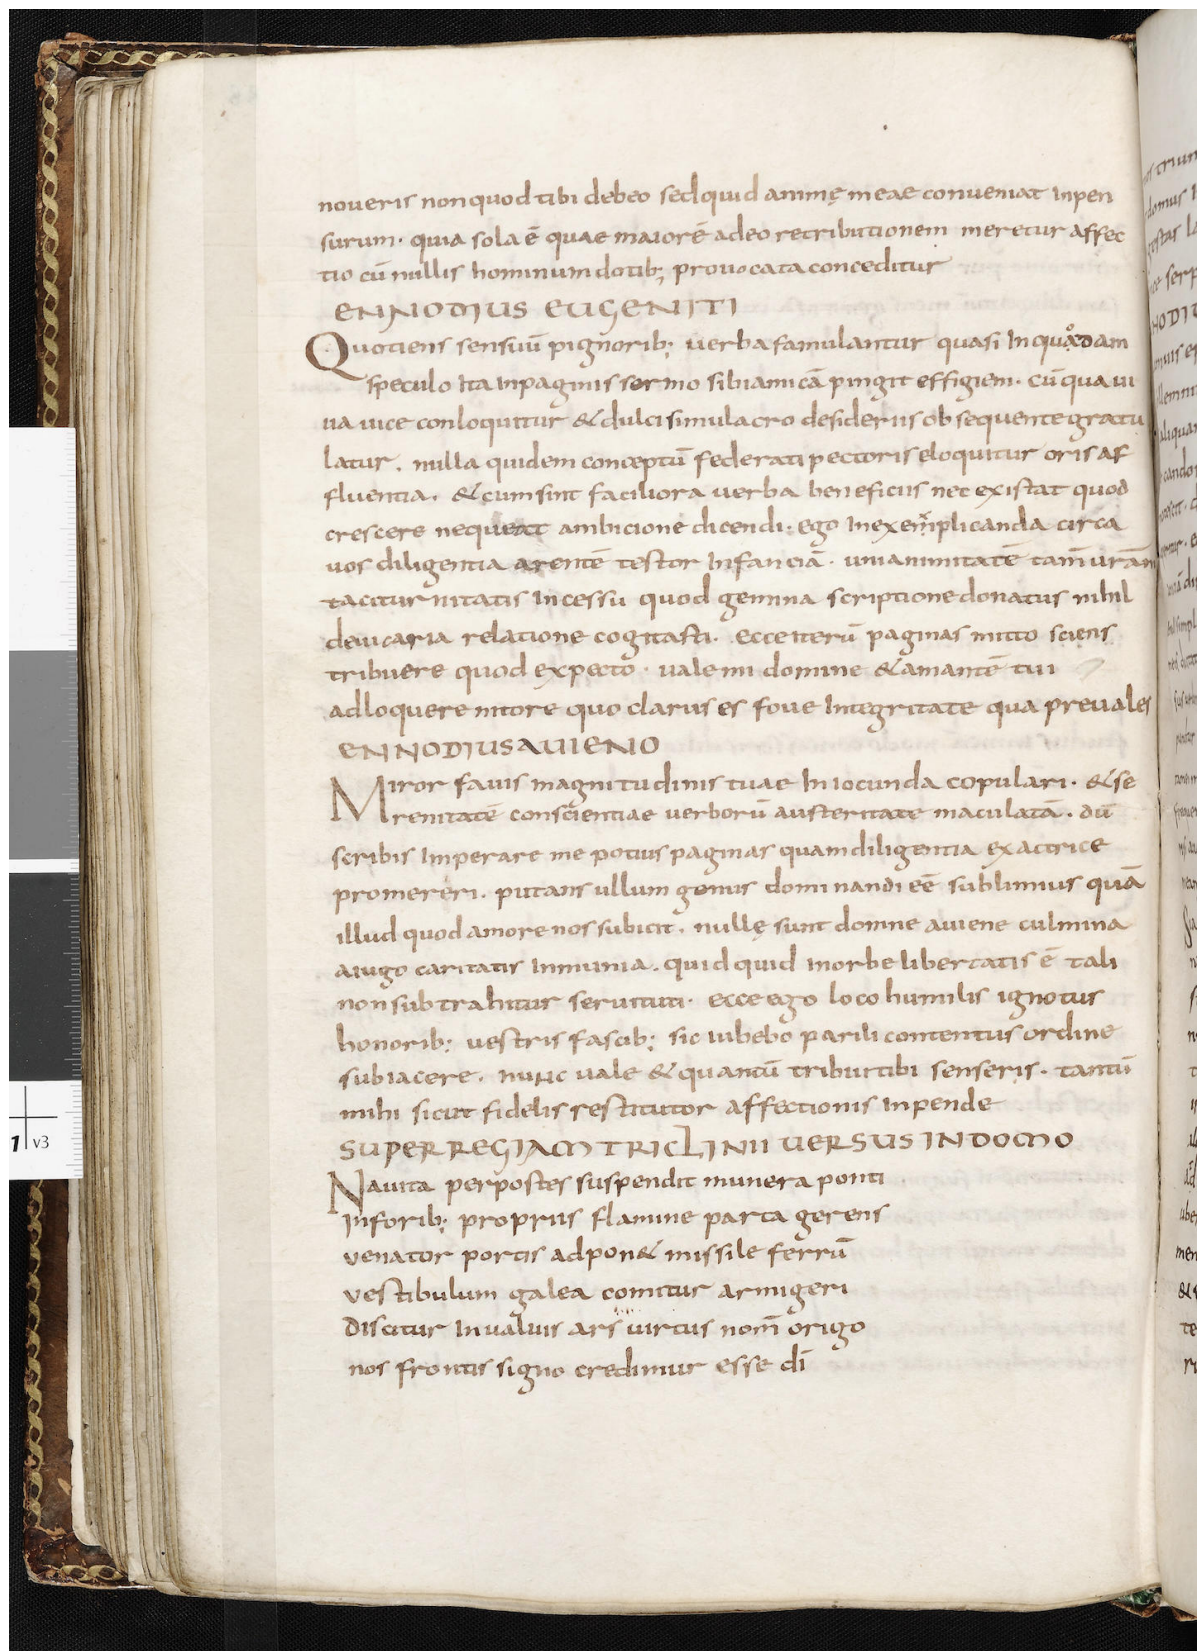 noueris non quod tibi debeo sed quid animę meae conueniat inpen
surum. quia sola ē quae maiorē adeo retributionem meretur affec
tio cū nullis hominum dotib; prouocata conceditur
ENNODIUS EUGENITI
Quotiens sensuū pignorib; uerba famulantur quasi in quodam
speculo ita in paginis sermo sibi amicā pingit effigiem. cū qua ui
ua uice conloquitur & dulci simulacro desideriis obsequente gratu
latur. nulla quidem conceptū federati pectoris eloquitur oris af
fluentia. & cum sint faciliora uerba beneficiis nec existat quod
crescere nequeat ambicione dicendi. ego in exemplicanda circa
uos diligentia arentē testor infanciā. unianimitatē tam̄ urām
taciturnitatis incessu quod gemina scriptione donatus nihil
de uicaria relatione cogitasti. ecce iterū paginas mitto sciens
tribuere quod expecto. uale mi domine & amantē tui
adloquere nitore quo clarus es foue integritate qua preuales
ENNODIUS AUIENO
Miror fauis magnitudinis tuae iniocunda copulari. & se
renitatē conscientiae uerborū austeritate maculatā. dū
scribis imperare me potius paginas quam diligentia exactrice
promereri. putans ullum genus dominandi eē sublimius quā
illud quod amore nos subicit. nullę sunt domne auiene culmina
a iugo caritatis inmunia. quidquid in orbe libertatis ē tali
non subtrahitur seruituti. ecce ego loco humilis ignotus
honorib; uestris fascib; sic iubebo parili contentus ordine
subiacere. nunc uale & quantū tribui tibi senseris. tantū
mihi sicut fidelis restitutor affectionis inpende
SUPER REGIAM TRICLINII UERSUS IN DOMO
Nauita perpostes suspendit munera ponti
in forib; propriis flamine parta gerens
uenator portis adpon& missile ferrū
uestibulum galea comitur armigeri
discitur in ualuis ars uirtus nom̄ origo
nos frontis signo credimur esse dī